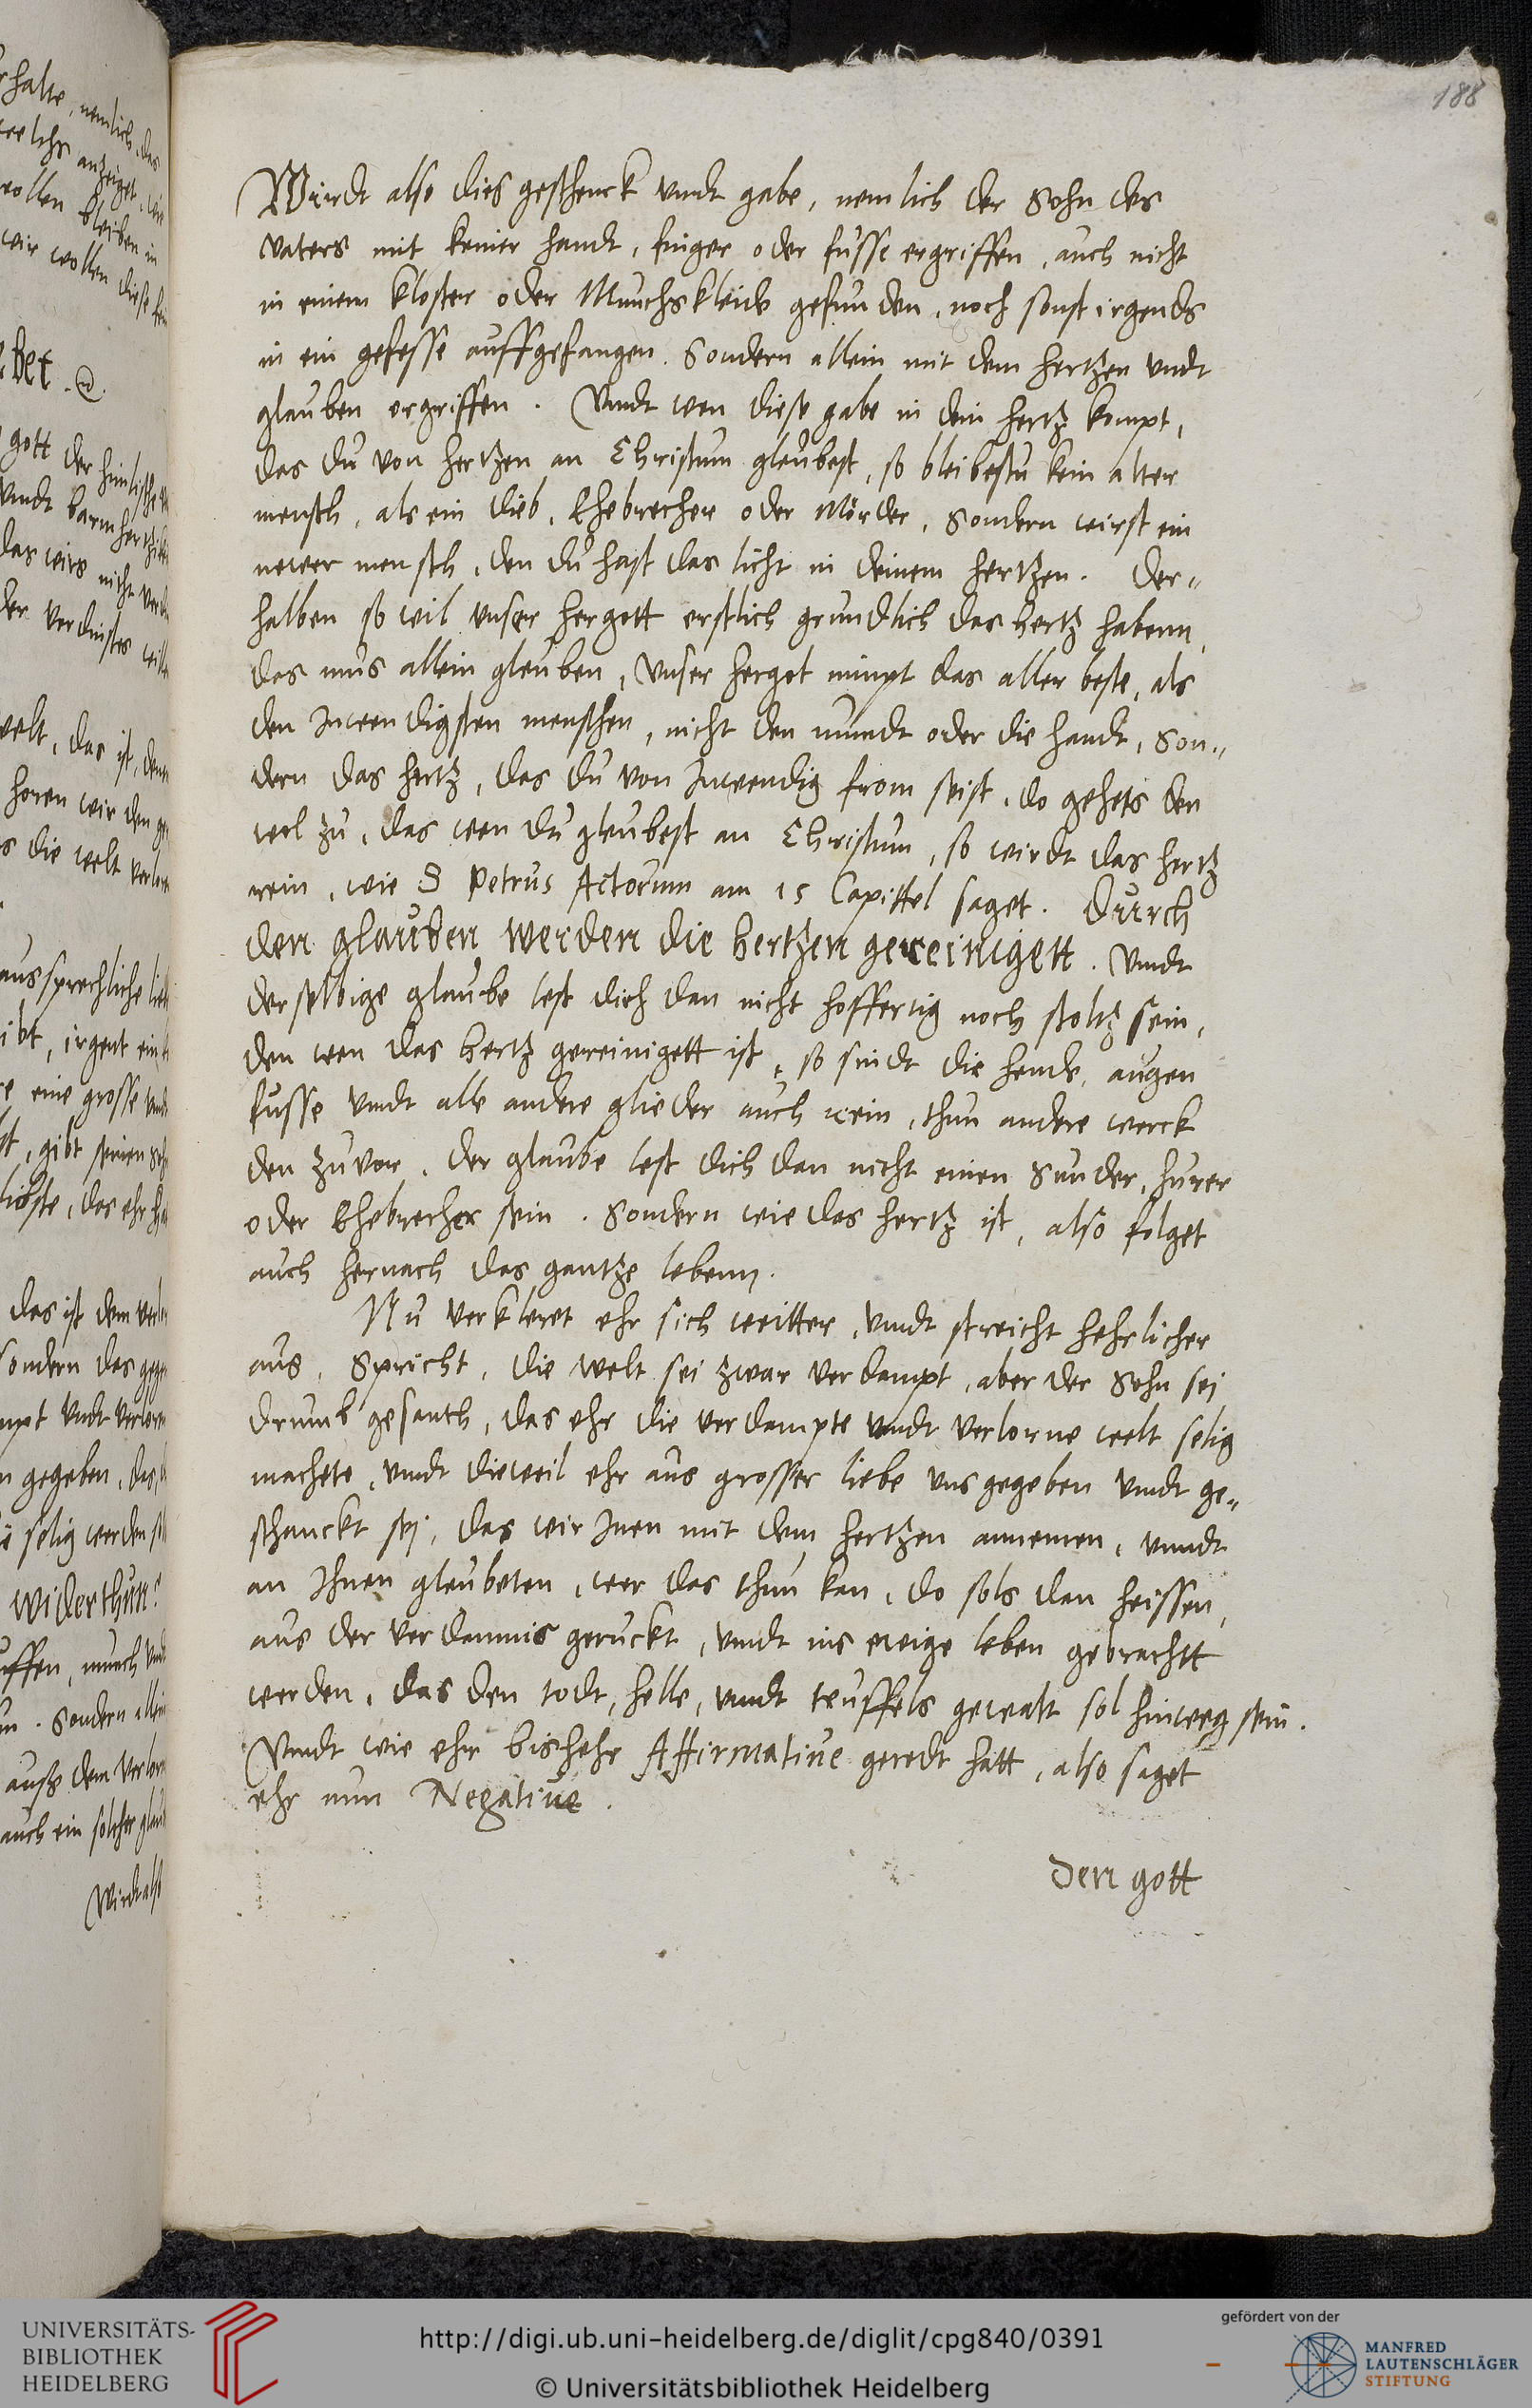 188
Wirdt also dies geschenck vndt gabe, nemlich der Sohn des
vaters mit keiner handt, finger oder füsse ergriffen, auch nicht
in einem kloster oder Munchskleide gefunden, noch sonst irgends
in ein gefesse auffgefangen. Sondern allein mit dem hertzen vndt
glauben ergriffen. Vndt wen diese gabe in dein hertz kompt,
das du von hertzen an Christum gleubest, so bleibestu kein alter
mensch, als ein dieb, Ehebrecher oder Mörder, Sondern wirst ein
newer mensch, den du hast das licht in deinem hertzen. Der„
halben so wil vnser hergott erstlich grundlich das hertz habenn,
das mus allein gleuben, Vnser hergot nimpt das aller beste, als
den Inwendigsten menschen, nicht den mundt oder die handt, Son„
dern das hertz, das du von Inwendig from seist, do gehets den
wol zu, das wen du gleubest an Christum, so wirdt das hertz
rein, wie S Petrus Actorum am 15 Capittel saget. Durch
den glauben werden die hertzen gereinigett. Vndt
derselbige glaube lest dich dan nicht hoffertig noch stoltz sein,
den wen das hertz gereinigett ist, so sindt die hende, augen
fusse vndt alle andere glieder auch rein, thun andere werck
den zuvor. Der glaube lest dich dan nicht einen Sunder, hurer
oder Ehebrecher sein. Sondern wie das hertz ist, also folget
auch hernach das gantze lebenn.
Nu verkleret ehr sich weitter, vndt streicht hehrlicher
aus, Spricht, die welt sei zwar verdampt, aber der Sohn sei
drumb gesanth, das ehr die verdampte vndt verlorne welt selig
machete, vndt dieweil ehr aus grosser liebe vns gegeben vndt ge„
schanckt sej, das wir Inen mit dem hertzen annemen, vnndt
an Ihnen gleubeten, wer das thun kan, do sols dan heissen,
aus der verdamnis geruckt, vndt ins ewige leben gebrachtt
werden, das den todt, helle, vndt teuffels gewalt sol hinweg sein.
Vndt wie ehr bishehr Affirmatiue geredt hatt, also saget
ehr nun Negatiue.
Den gott
UNIVERSITÄTS-
BIBLIOTHEK
HEIDELBERG
http://digi.ub.uni-heidelberg.de/diglit/cpg840/0391
© Universitätsbibliothek Heidelberg
gefördert von der
MANFRED
LAUTENSCHLÄGER
STIFTUNG